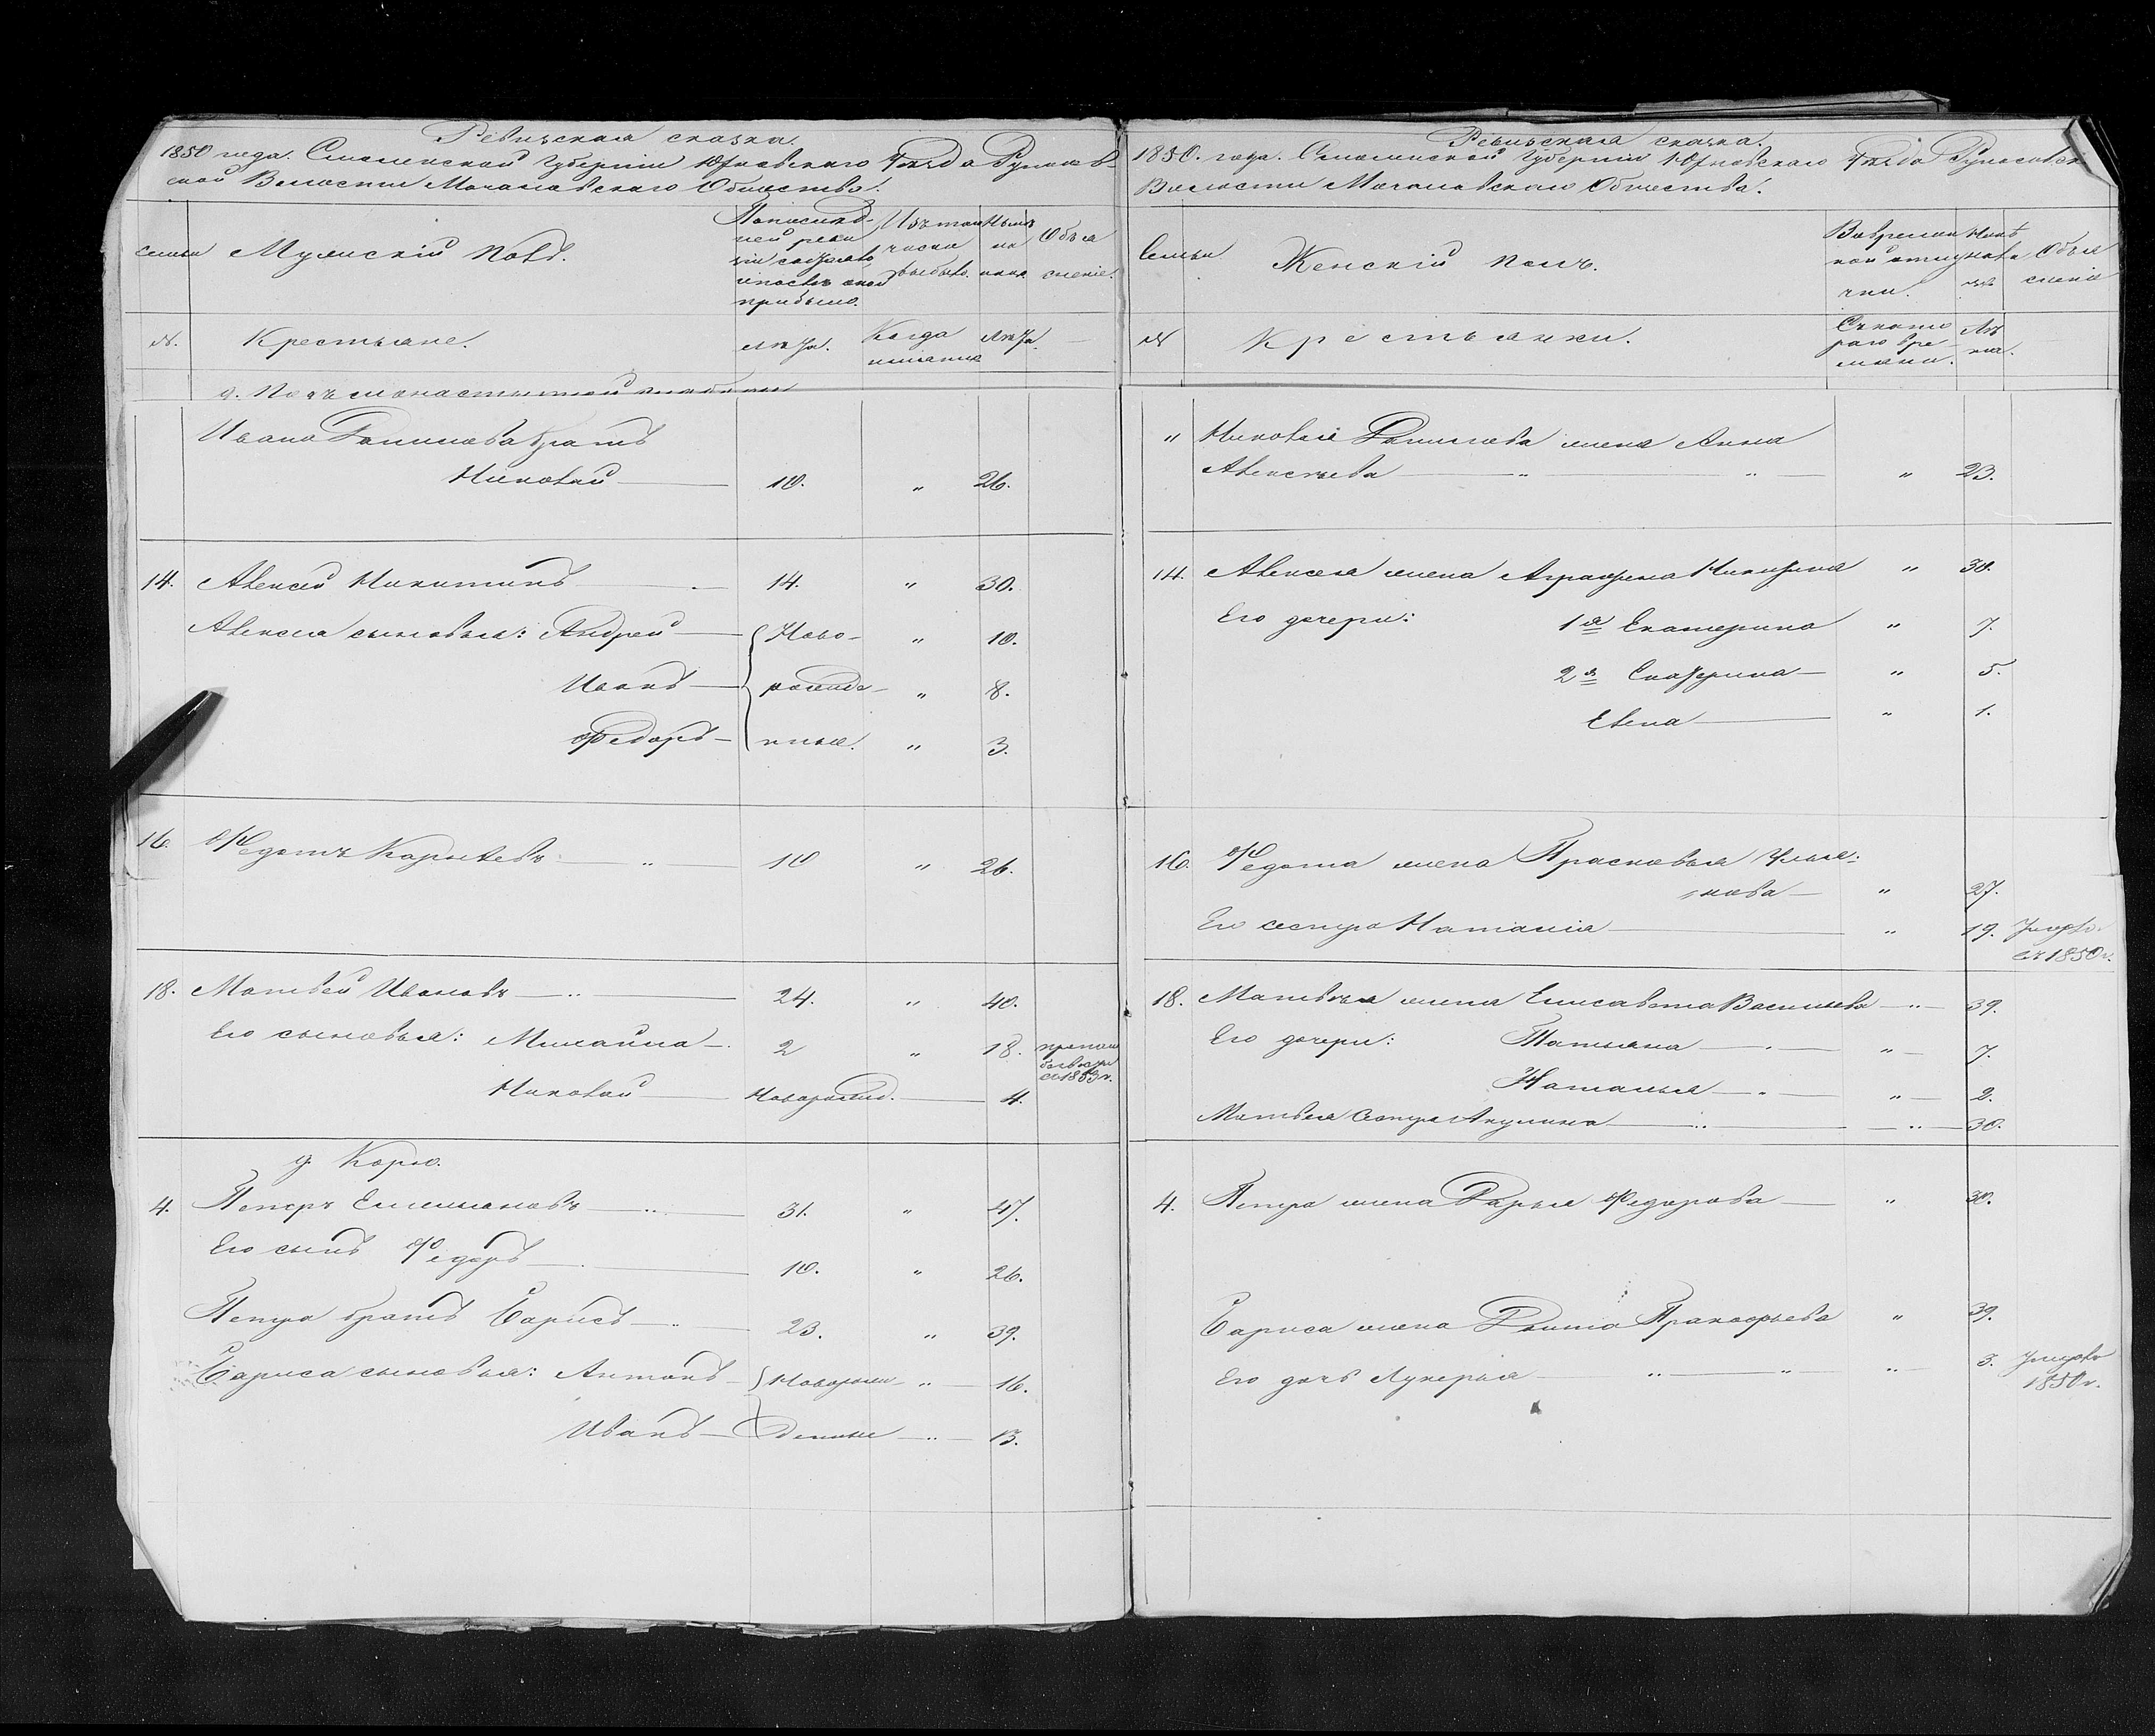 Ревизская сказка.
1850 года. Смоленской Губерніи Юхновскаго Уезда
ской Волости Мочаловскаго Общества.
Семьи
Мужескій полъ.
По последней ревизіи состояло и после оной прибыло.
Изъ того числа выбыло.
Ныне на лицо.
Объяснение.
№.
Крестьяне.
лета.
Когда именно
лета.
Ивана Данилова братъ
Николай 10. " 26.
14. Алексей Никитинъ 14. " 30.
Алексея сыновья: Андрей Ново- " 10.
Иванъ рожде- " 8.
Федоръ нные. " 3.
16. Федотъ 10 " 26.
18. Матвей Ивановъ 24. " 40.
Его сыновья: Михаила 2 " 18.
Николай Новорожд. 4.
д.
4. Петръ Емельяновъ 31. " 47.
Его сынъ Федоръ 10. " 26.
Петра братъ Борисъ 23. " 39.
Бориса сыновья: Антонъ Новорож- " 16.
Иванъ денные " 13.
Ревизская сказка.
1850. года. Смоленской Губерніи Юхновскаго Уезда
Волости Мочаловскаго Общества.
Семьи
Женскій полъ.
Во временной отлучке.
Ныне на лицо
Объяснение
№
Крестьянки.
Съ котораго времени.
Лета.
" Николая Данилова жена Анна
Алексеева " " " 23.
14. Алексея жена Аграфена Никитина " 30.
Его дочери: 1я Екатерина " 7.
2я Екатерина " 5.
Елена " 1.
16. Федота жена Прасковья Улья-
нова " 27.
Его сестра Наталия " 19.
1850 г.
18. Матвея жена Елисавета Васильева " 39.
Его дочери: Татьяна " 7.
Наталья " 2.
Матвея сестра Акулина " 30.
4. Петра жена Дарья Федорова " 30.
Бориса жена Прокофьева " 39.
Его дочь Лукерья " " " 3. умерла
1850 г.